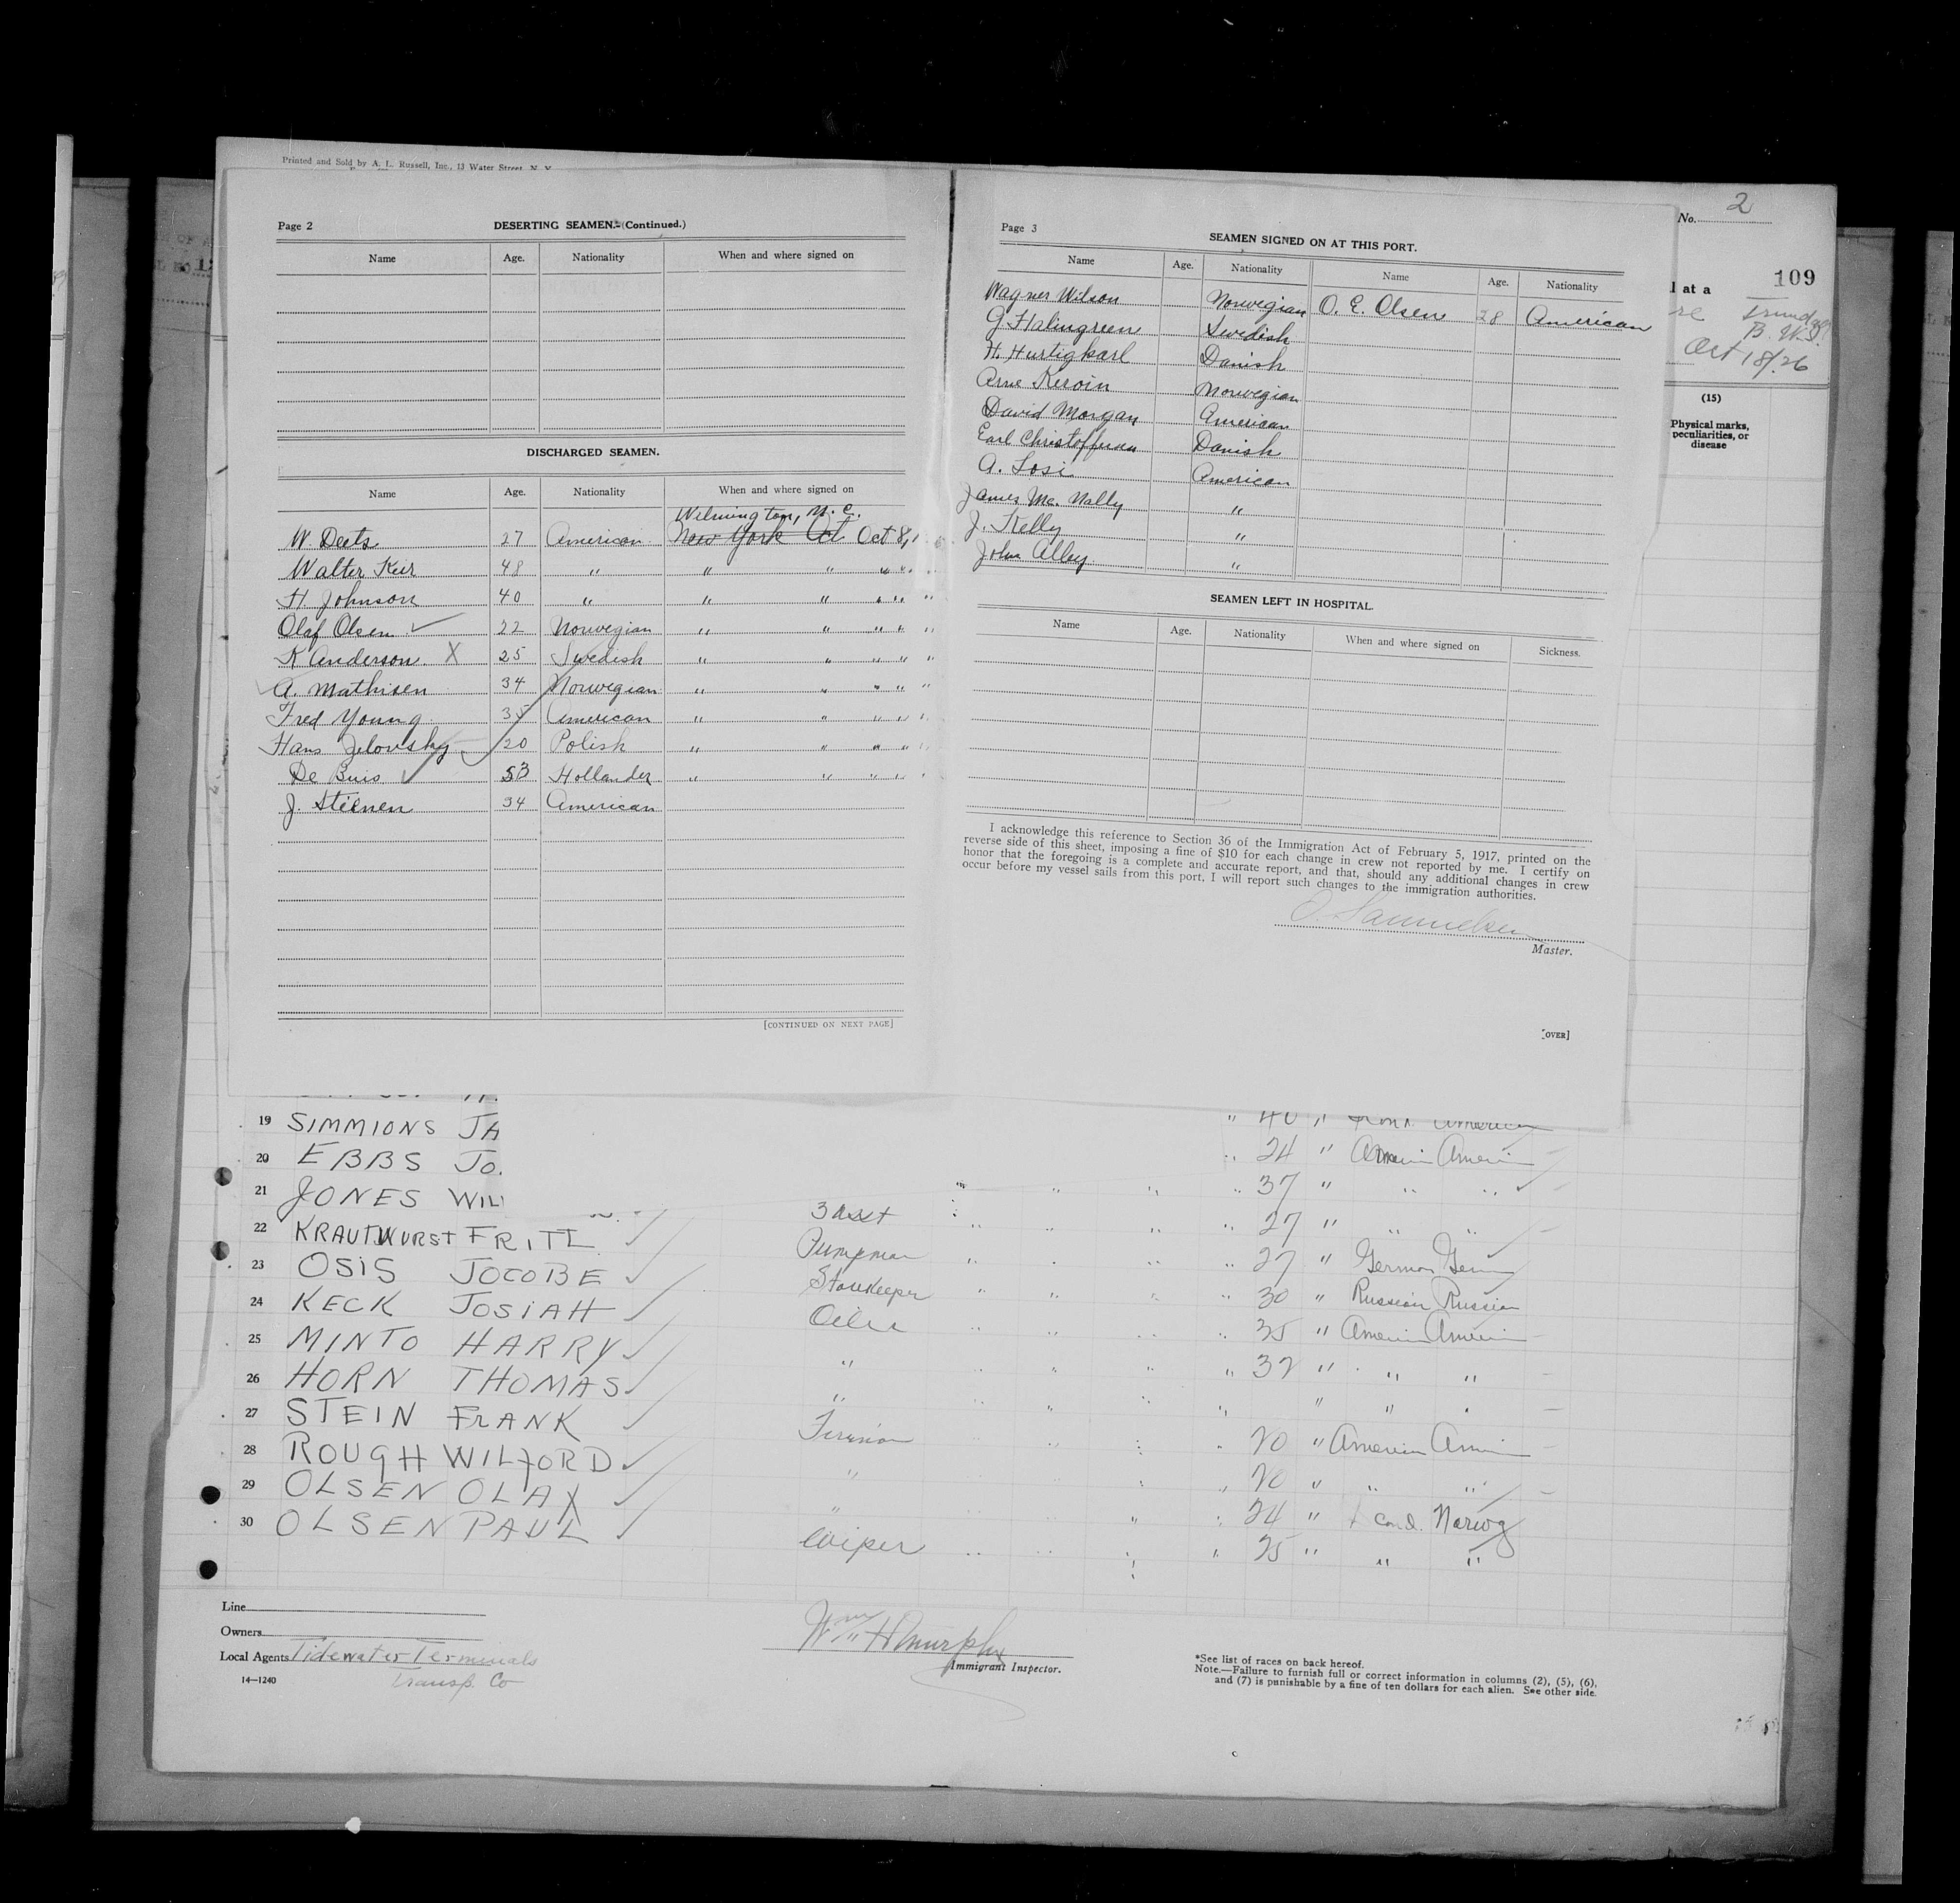 Printed and Sold by A. L. Russell, Inc., 13 Water Street, N. Y.
Page 2
DESERTING SEAMEN.-(Continued.)
Name Age. Nationality When and where signed on
DISCHARGED SEAMEN.
Name Age. Nationality When and where signed on
Wilmington, N. C.
W. Deets 27 American New York Oct Oct 8,
Walter Keir 48 " " " " "
H. Johnson 40 " " " " " "
Olaf Olsen 22 Norwegian " " " " "
K Anderson X 25 Swedish " " " " "
A. Mathisen 34 Norwegian " " " " "
Fred Young 35 American " " " "
Hans Jelovsky 20 Polish " " " "
De Buis 53 Hollander " " " "
J. Stienen 34 American
[CONTINUED ON NEXT PAGE]
Page 3
SEAMEN SIGNED ON AT THIS PORT.
Name Age. Nationality Name Age. Nationality
Wagner Wilson Norwegian O. E. Olsen 28 American
G Halingreen Swedish
H. Hurtigkarl Danish
Arne Keroin Norwegian
David Morgan American
Earl Christoffersen Danish
A. Losi American
James Mc. Nally "
J. Kelly "
John Alley "
SEAMEN LEFT IN HOSPITAL.
Name Age. Nationality When and where signed on Sickness.
I acknowledge this reference to Section 36 of the Immigration Act of February 5, 1917, printed on the
reverse side of this sheet, imposing a fine of $10 for each change in crew not reported by me. I certify on
honor that the foregoing is a complete and accurate report, and that, should any additional changes in crew
occur before my vessel sails from this port, I will report such changes to the immigration authorities.
O. Samuelsen
Master.
[OVER]
No. 2
109
l at a
B. W. I.
Oct 18/26
(15)
Physical marks,
peculiarities, or
disease
19 SIMMIONS JA " 40 "
20 EBBS JO. " 24 "
21 JONES WIL " 37 " " "
22 KRAUTWURST FRITZ 3 asst " " " " 27 " " "
23 OSIS JOCOBE Pumpman " " " " 27 " German
24 KECK JOSIAH Storekeeper " " " " 30 " Russian Russian
25 MINTO HARRY Oiler " " " " 35 "
26 HORN THOMAS " " " " " 32 " " "
27 STEIN FRANK " " " " " " " "
28 ROUGH WILFORD Fireman " " " " 20 "
29 OLSEN OLAF " " " " 20 " " "
30 OLSEN PAUL " " " 24 " Scand. Norwg
Wiper " " " " 25 " " "
Line
Owners
Local Agents Tidewater Terminals
Transp. Co
14—1240
Wm H Murphy
Immigrant Inspector.
*See list of races on back hereof.
Note.—Failure to furnish full or correct information in columns (2), (5), (6),
and (7) is punishable by a fine of ten dollars for each alien. See other side.